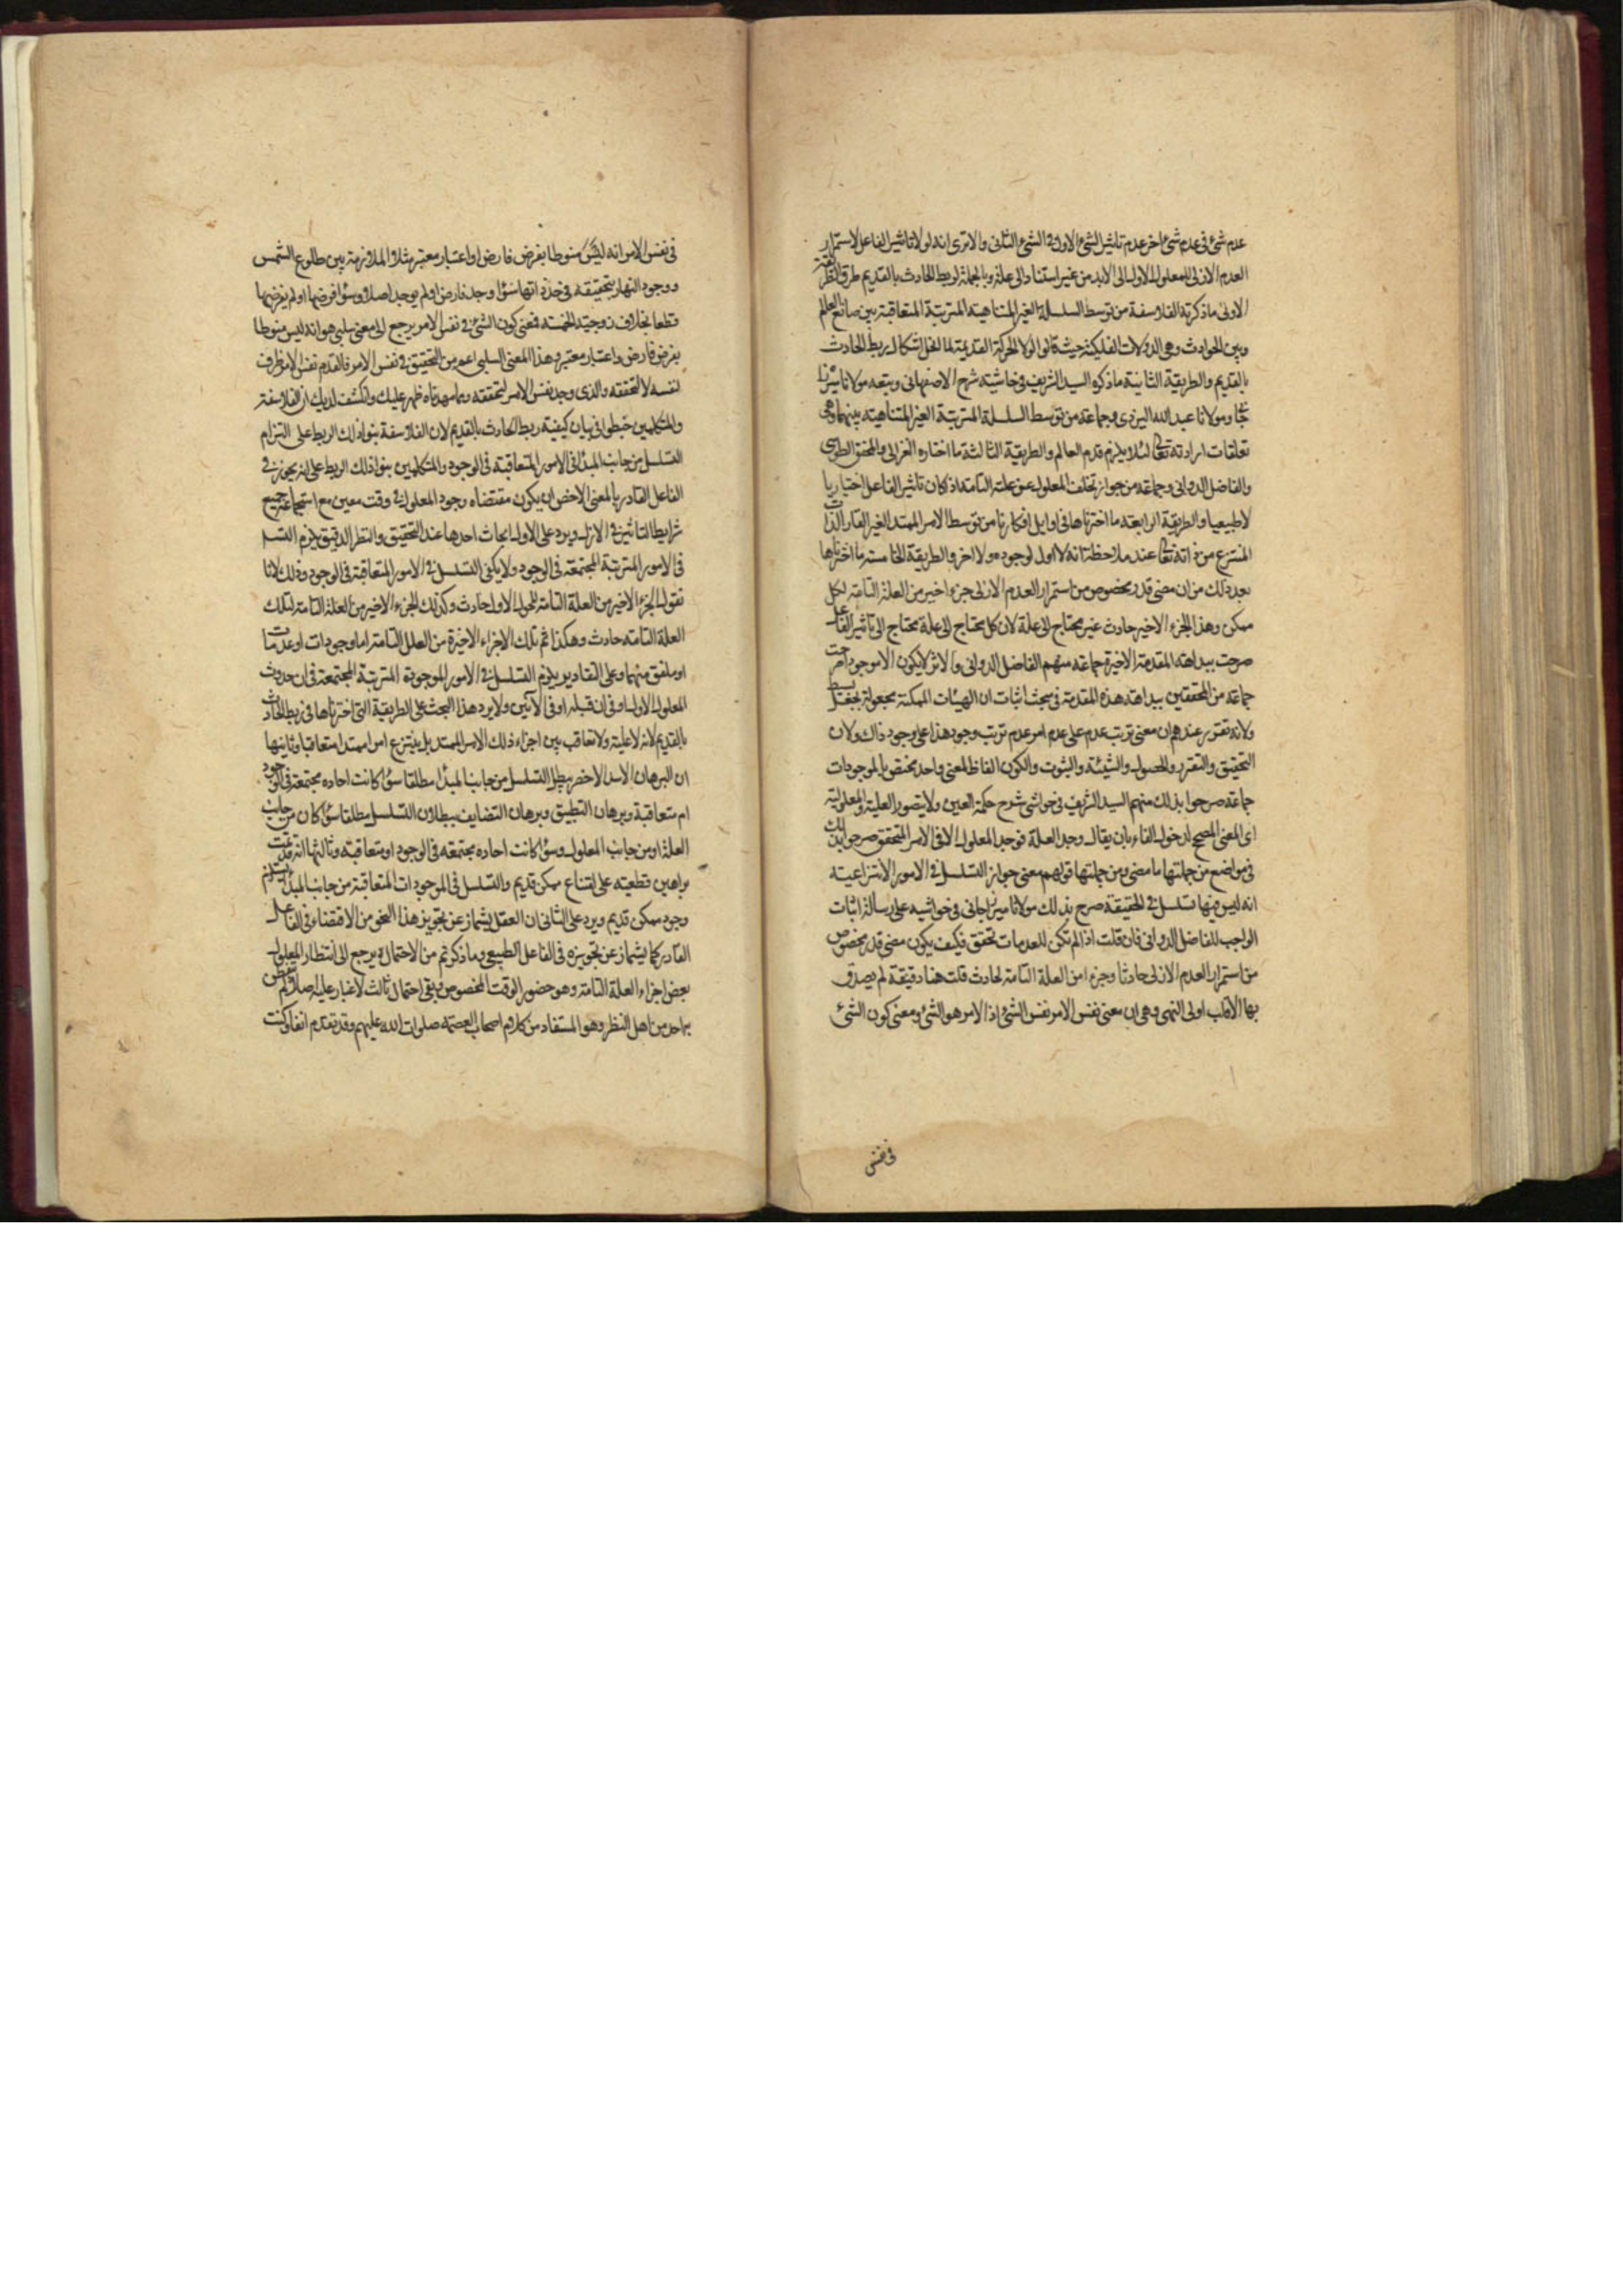 عدم شئ فى عدم شئ اخر عدم تاثير الشئ الاول فى الشئ الثانى والا ترى انه لولا تاثير الفاعل لاستمرار
العدم الازلى للمعلول الاول الى الابد من غير استناد الى علة وبالجملة لربط الحادث بالقديم طرق الطريقة
الاولى ما ذكرته الفلاسفة من توسط السلسلة الغير المتناهية المترتبة المتعاقبة بين صانع العالم
وبين الحوادث وهى الدورات الفلكية حيث قالوا لولا الحركة القديمة لما انحل اشكال ربط الحادث
بالقديم والطريقة الثانية ما ذكره السيد الشريف فى حاشية شرح الاصفهانى وتبعه مولانا ميرزا
جان ومولانا عبد الله اليزدى وجماعة من توسط السلسلة المترتبة الغير المتناهية بينهما وهى
تعلقات ارادته تعالى لئلا يلزم قدم العالم والطريقة الثالثة ما اختاره الغزالى والمحقق الطوسى
والفاضل الدوانى وجماعة من جواز تخلف المعلول عن علته التامة اذا كان تاثير الفاعل اختياريا
لا طبيعيا والطريقة الرابعة ما اخترناها فى اوايل افكارنا من توسط الامر الممتد الغير القار الذات
المنتزع من ذاته تعالى عند ملاحظة انه لا اول لوجوده ولا اخر والطريقة الخامسة ما اخترناها
بعد ذلك من ان مضى قدر مخصوص من استمرار العدم الازلى جزء اخير من العلة التامة لكل
ممكن وهذا الجزء الاخير حادث غير محتاج الى علة لان كل محتاج الى علة محتاج الى تاثير الفاعل
صرحت ببداهة المقدمة الاخيرة جماعة منهم الفاضل الدوانى والاثر لا يكون الا موجودا صرحت
جماعة من المحققين ببداهة هذه المقدمة فى مبحث اثبات ان الهيئات الممكنة مجعولة بجعل بسيط
ولانه تقرر عندهم ان معنى ترتب عدم على عدم امر عدم ترتب وجود هذا على وجود ذاك ولان
التحقيق والتقرر والحصول والشيئة والثبوت والكون الفاظ لمعنى واحد مختص بالموجودات
جماعة صرحوا بذلك منهم السيد الشريف فى حواشى شرح حكمة العين ولا يتصور العلية والمعلولية
اى المعنى المصحح لدخول الفاء بان يقال وجد العلة فوجد المعلول الا فى الامر المتحقق صرحوا بذلك
فى مواضع من جملتها ما مضى ومن جملتها قولهم معنى جواز التسلسل فى الامور الانتزاعية
انه ليس فيها تسلسل فى الحقيقة صرح بذلك مولانا ميرزاجانى فى حواشيه على رسالة اثبات
الواجب للفاضل الدوانى فان قلت اذا لم تكن للعدمات تحقق فكيف يكون مضى قدر مخصوص
من استمرار العدم الازلى حادثا وجزء من العلة التامة لحادث قلت هنا دقيقة لم يصدق
بها الالباب اولى النهى وهى ان معنى نفس الامر نفس الشئ اذ الامر هو الشئ ومعنى كون الشئ
فى نفس
فى نفس الامر انه ليس منوطا بفرض فارض او اعتبار معتبر مثلا الملازمة بين طلوع الشمس
ووجود النهار متحققة فى حد ذاتها سواء وجد فارض او لم يوجد اصلا وسواء فرضها او لم يفرضها
قطعا بخلاف زوجية الخمسة فمعنى كون الشئ فى نفس الامر يرجع الى معنى سلبى هو انه ليس منوطا
بفرض فارض واعتبار معتبر وهذا المعنى السلبى اعم من التحقيق فى نفس الامر فالقدم نفس الامر ظرف
لنفسه لا لتحققه والذى وجد نفس الامر لتحققه ومما مهدناه ظهر عليك وانكشف لديك ان الفلاسفة
والمتكلمين خبطوا فى بيان كيفية ربط الحادث بالقديم لان الفلاسفة بنوا ذلك الربط على التزام
التسلسل من جانب المبدا فى الامور المتعاقبة فى الوجود والمتكلمين بنوا ذلك الربط على انه يجوز فى
الفاعل القادر بالمعنى الاخص ان يكون مقتضاه وجود المعلول فى وقت معين مع استجماعه جميع
شرايط التاثير فى الازل ويرد على الاول ابحاث احدها عند التحقيق والنظر الدقيق يلزم التسلسل
فى الامور المترتبة المجتمعة فى الوجود ولا يكفى التسلسل فى الامور المتعاقبة فى الوجود وذلك لانا
نقول الجزء الاخير من العلة التامة للحول الاول حادث وكذلك الجزء الاخير من العلة التامة لتلك
العلة التامة حادث وهكذا ثم تلك الاجزاء الاخيرة من العلل التامة اما وجودات او عدمات
او ملفق منهما وعلى التقادير يلزم التسلسل فى الامور الموجودة المترتبة المجتمعة فى ان حدوث
المعلول الاول او فى ان قبله او فى الآنين ولا يرد هذا البحث على الطريقة التى اخترناها فى ربط الحادث
بالقديم لانه لا علية ولا تعاقب بين اجزاء ذلك الامر الممتد بل ينتزع امر ممتد متعاقبا وثانيها
ان البرهان الاسد الاخصر يبطل التسلسل من جانب المبدا مطلقا سواء كانت احاده مجتمعة فى الوجود
ام متعاقبة وبرهان التطبيق وبرهان التضايف يبطلان التسلسل مطلقا سواء كان من جانب
العلة او من جانب المعلول وسواء كانت احاده مجتمعة فى الوجود او متعاقبة وثالثها انه قد تحقت
براهين قطعية على امتناع ممكن قديم والتسلسل فى الموجودات المتعاقبة من جانب المبدا يستلزم
وجود ممكن قديم ويرد على الثانى ان العقل يشماز عن تجويز هذا النحو من الاقتضاء فى الفاعل
القادر كما يشماز عن تجويزه فى الفاعل الطبيعى وما ذكرتم من الاحتمال يرجع الى انتظار المعلول
بعض اجزاء العلة التامة وهو حضور الوقت المخصوص وبقى احتمال ثالث لا غبار عليه اصلا ولم يتفطن
به احد من اهل النظر وهو المستفاد من كلام اصحاب العصمة صلوات الله عليهم وقد تقدم انفا وكنت